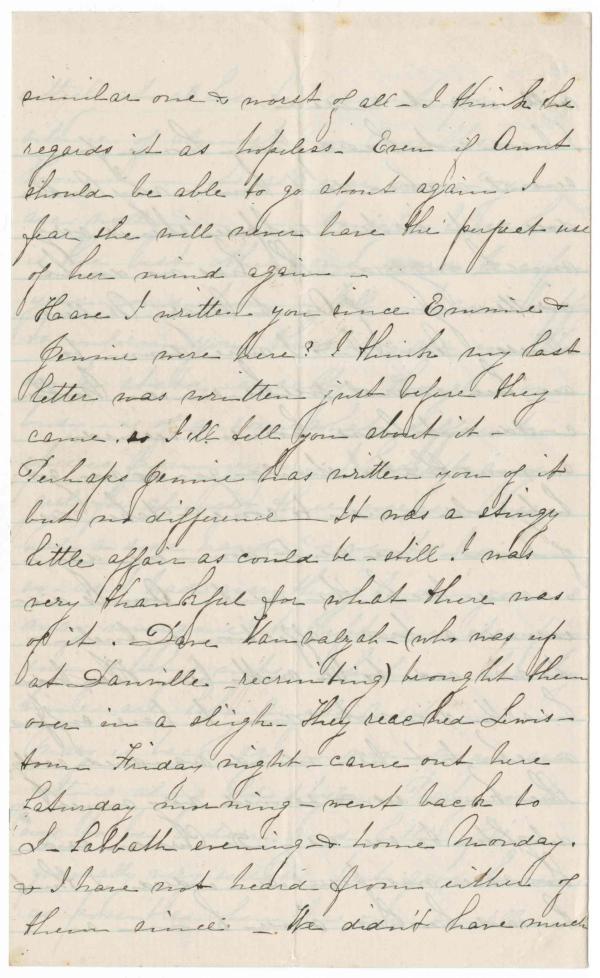 similar one & worst of all – I think he
regards it as hopeless – Even if Aunt
should be able to go about again I
fear she will never have the perfect use
of her mind again –
Have I written you since Emmie &
Jennie were here? I think my last
letter was written just before they
came. so I'll tell you about it –
Perhaps Jennie has written you of it
but no difference – It was a stingy
little affair as could be – still I was
very thankful for what there was
of it. Dave Vanvalzah – (who was up
at Danville – recruiting) brought them
over in a sleigh – They reached Lewis-
town Friday night – came out here
Saturday morning – went back to
L – Sabbath evening – & home Monday.
& I have not heard from either of
them since – We didn't have much